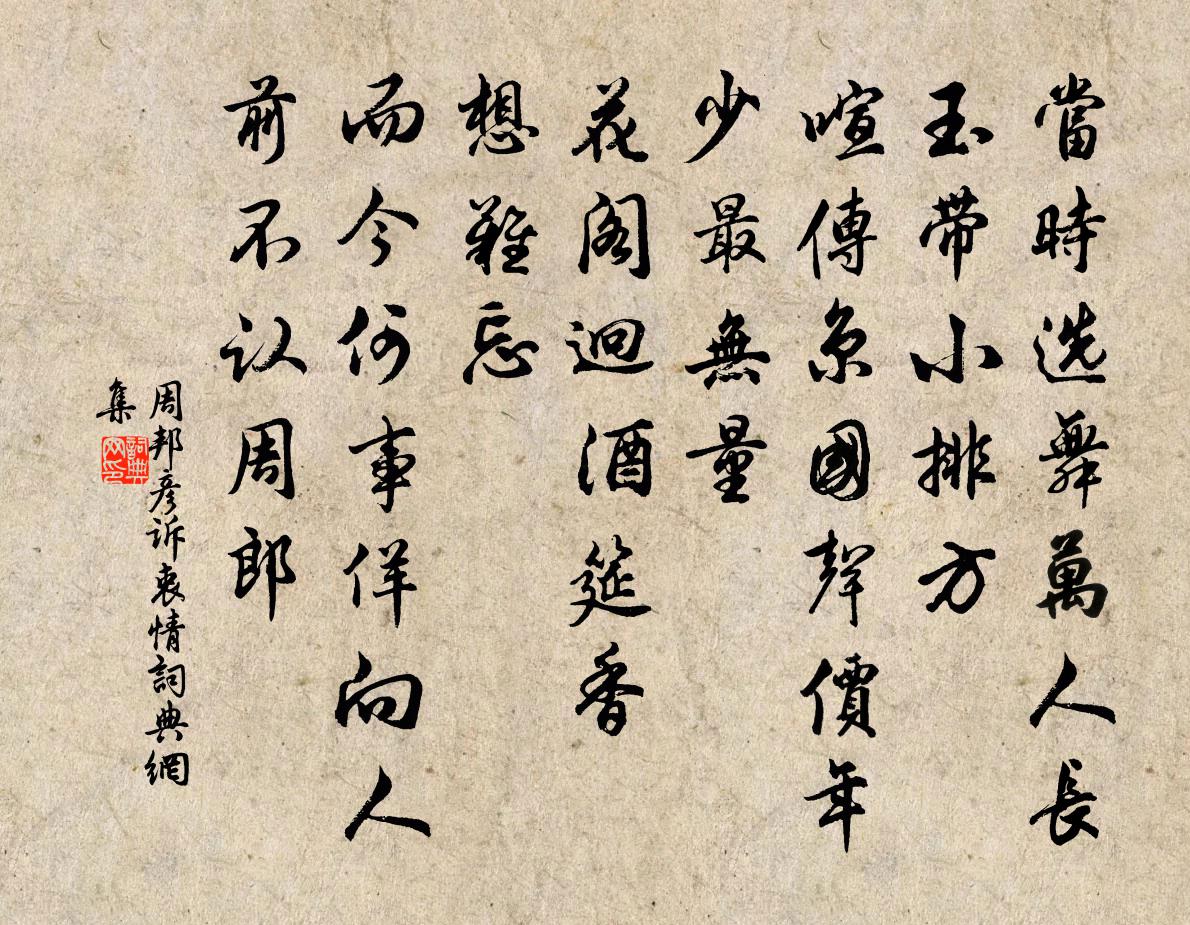 當時选舞萬人長
玉帶小排方
喧傳京國聲價年
少最無量
花閣迥酒筵香
想難忘
而今何事佯向人
前不认周郎
周邦彦诉衷情詞典網
集
詞典
网印